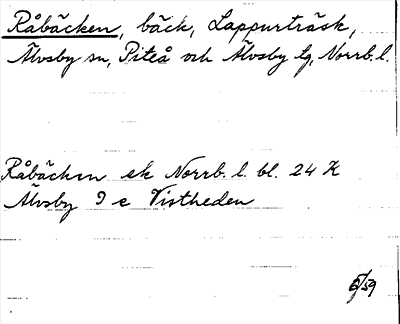 Råbäcken, bäck, Lappurträsk,
Älvsby sn, Piteå och Älvsby tg, Norrb. l.
Råbäcken ek Norrb. l. bl. 24 K
Älvsby 9 e Vistheden
5/59